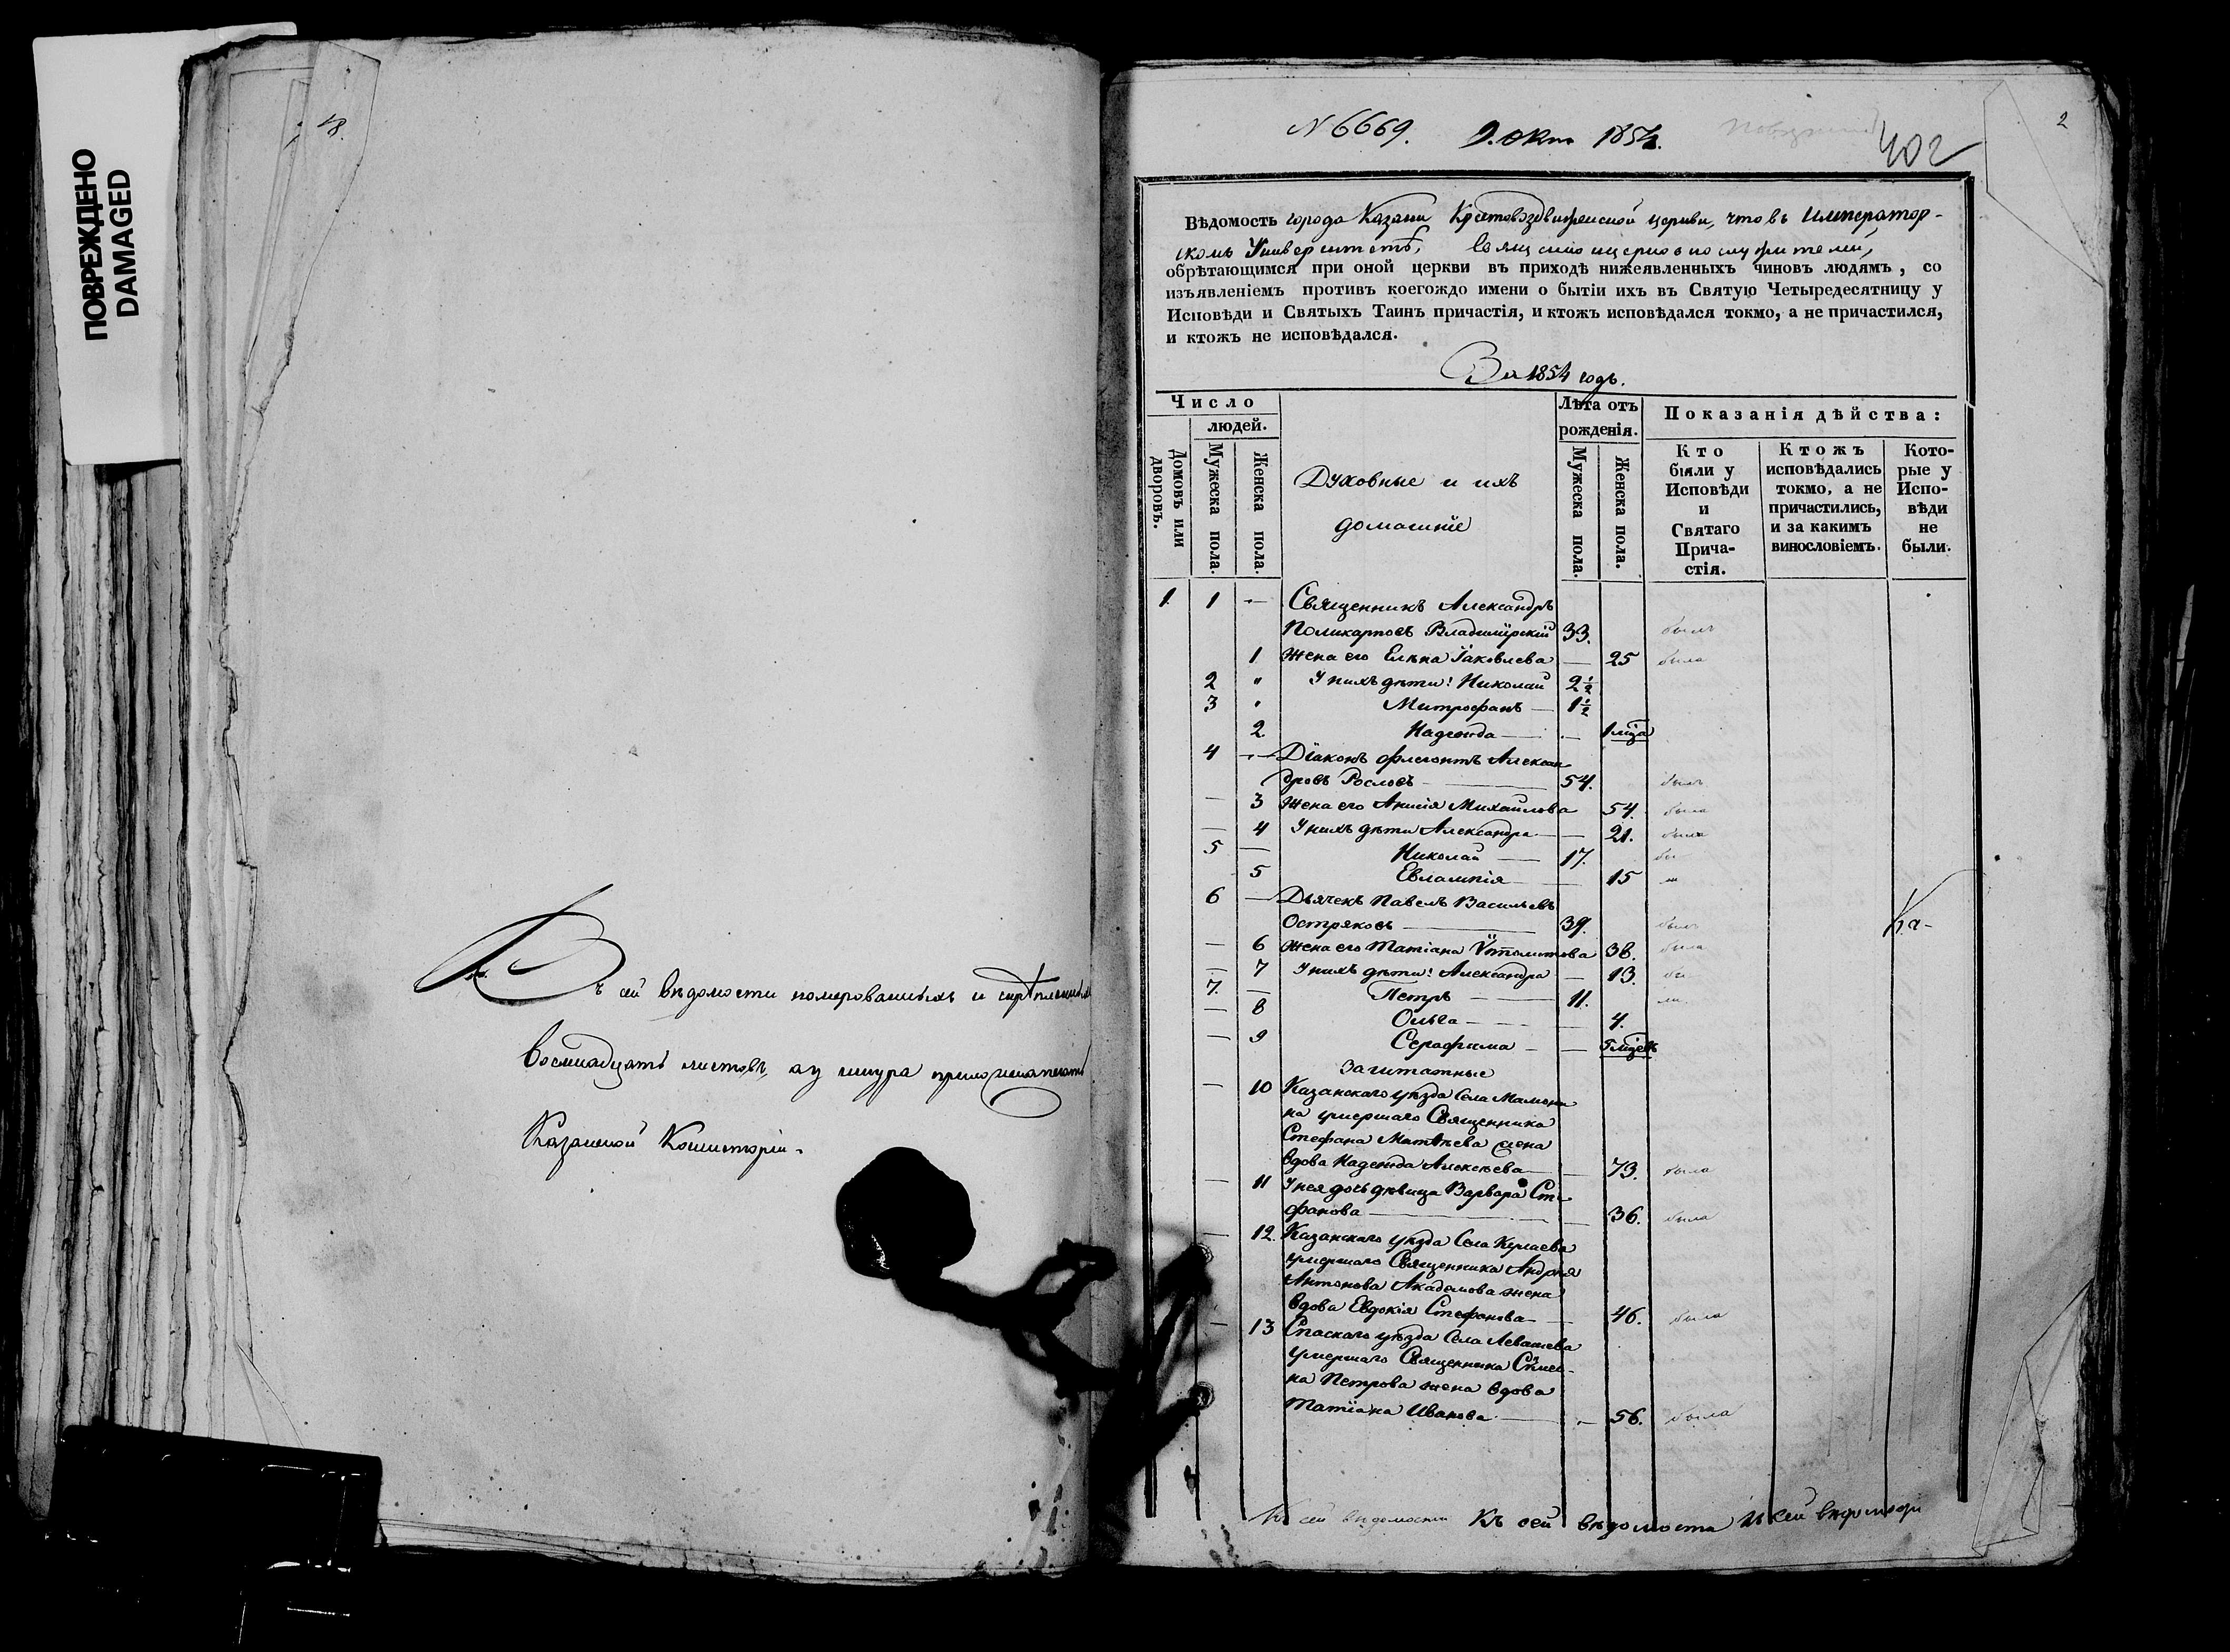 ПОВРЕЖДЕНО
DAMAGED
18.
Въ сей вѣдомости номерованныхъ и скрѣпленныхъ
восмнадцать листовъ, а у шнура приложена печать
Казанской Консисторіи.
N 6669. 9. Окт 1854.
402
2
Вѣдомость города Казани Крестовоздвиженской церкви, что въ Император-
скомъ Университетѣ,
обрѣтающимся при оной церкви въ приходѣ нижеявленныхъ чиновъ людямъ, со
изъявленіемъ противъ коегождо имени о бытіи ихъ въ Святую Четыредесятницу у
Исповѣди и Святыхъ Таинъ причастія, и ктожъ исповѣдался токмо, а не причастился,
и ктожъ не исповѣдался.
За 1854 годъ.
Число
людей.
Домовъ или дворовъ.
Мужеска пола.
Женска пола.
Духовные и ихъ
домашніе
Лѣта отъ
рожденія.
Мужеска пола.
Женска пола.
Показанія дѣйства:
Кто
были у
Исповѣди
и
Святаго
Прича-
стія.
Ктожъ
исповѣдались
токмо, а не
причастились,
и за какимъ
винословіемъ.
Кото-
рые у
Испо-
вѣди
не
были.
1 1 — Священникъ Александръ
Поликарповъ Владимірскій 33. былъ
1 Жена его Елена Іаковлева — 25 была
2 " У нихъ дѣти: Николай 2½
3 " Митрофанъ — 1½
2 Надежда — — 1 мѣся
4 — Діаконъ Флегонтъ Алексан
дровъ Рословъ — 54. былъ
— 3 Жена его Анисія Михайлова 54. была
— 4 У нихъ дѣти Александра — — 21. была
5 — Николай — 17. бы
5 Евлампія — — 15
6 — Дьячекъ Павелъ Васильевъ
Остряковъ — 39. былъ
— 6 Жена его Татіана Ѵпполитова 38. была
— 7 У нихъ дѣти: Александра — 13. бы
7. — Петръ — 11.
— 8 Ольга — — 4.
— 9 Серафима — — 5 мѣсяц
Заштатные
— 10 Казанскаго уѣзда Села Мамоны
на умершаго Священника
Стефана Матѳѣева жена
вдова Надежда Алексѣева — — 73. была
— 11 У нея дочь дѣвица Варвара Сте
фанова — — 36. была
— 12. Казанскаго уѣзда Села
умершаго Священника Андрея
Антонова Академова жена
вдова Евдокія Стефанова — — 46. была
— 13 Спаскаго уѣзда Села Левашева
умершаго Священника Сѵмео-
на Петрова жена вдова
Татіана Иванова — — 56. была
Къ сей вѣдомости Къ сей вѣдомости Къ сей